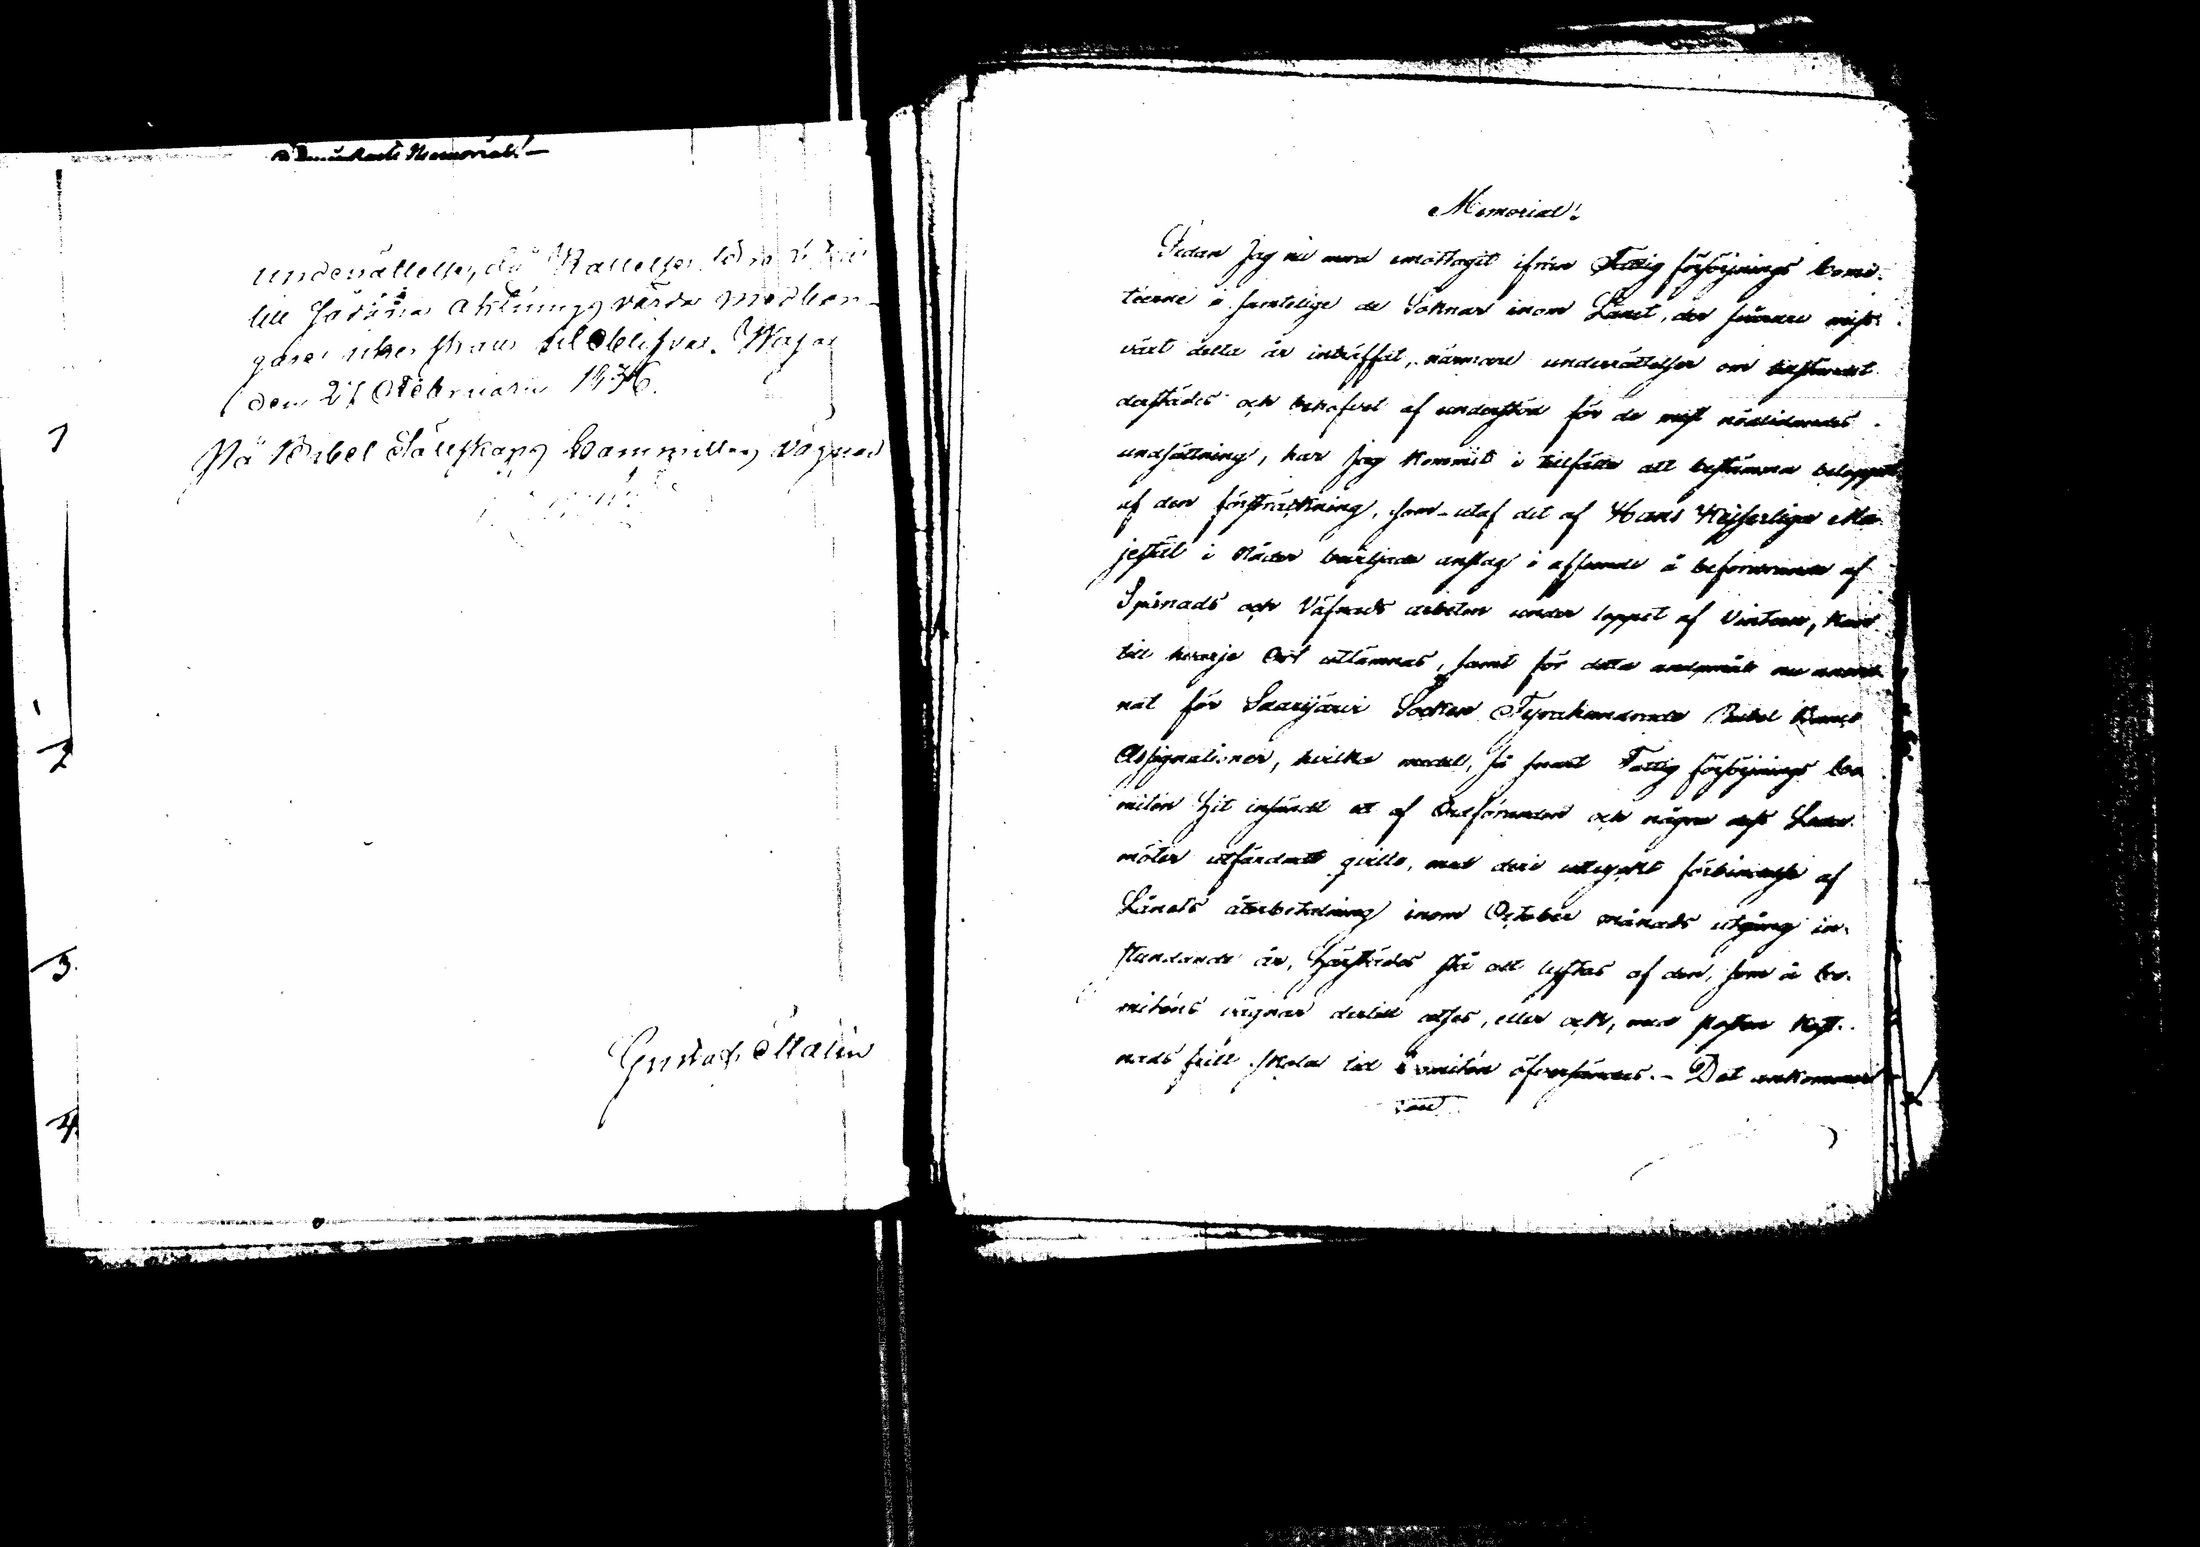 Memorial!
underrättelse, då Kallelse
till sådana aktningsvärda medbor-
gare utfärdas
den 27 Februarii 1836.
På Bibel Sällskaps Committéns vägnar
Gustaf Malin
1
2
3.
4.
Memorial!
Sedan Jag nu mera emottagit ifrån Fattig försörjnings Comi-
téerne i samtelige de Soknar inom Länet, der svårare miss-
växt detta år inträffat, närmare underrättelser om tillståndet
derstädes och behofvet af understöd för de mest nödlidandes
undsättning, har Jag kommit i tillfälle att bestämma beloppet
af den försträckning, som utaf det af Hans Kejserliga Ma-
jestät i Nåder beviljade anslag i afseende å befordrande af
Spånads och Väfnads arbeten under loppet af Vintern, kan
till hvarje Ort utlämnas, samt för detta ändamål nu anord-
nat för Saarijärvi Socken Fyrahundrade Rubel Banco
Assignationer, hvilka medel, så snart Fattig försörjnings Co-
mitén hit insändt ett af Ordföranden och några dess Leda-
möter utfärdadt qvitto, med deri uttryckt förbindelse af
Lånets återbetalning inom October månads utgång in-
stundande år, härstädes stå att lyftas af den, som å Co-
miténs vägnar dertill utses, eller ock, med posten kost-
nads fritt skola till Comitén öfversändas. - Det ankommer